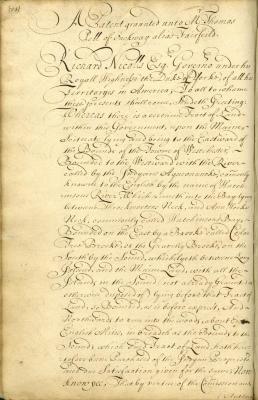 A Patent granted unto Mr. Thomas
Pell of Onckway alias Fairfeild.
Richard Nicolls Esqr. Governor under his
Royall Highness the Duke of Yorke of all his
Territoryes in America; To all to whom
these presents shall come, sendeth Greeting:
Whereas there is a certaine Tract of Land
within this Government, upon the Maine
scituate, lying and being to the Eastward of
the Bounds of
Bounded to the Westward with the River
called by the Indyans Aqueouncke, comonly
knowne to the English by the name of Hutch-
insons River, which runneth into the Bay lying
betweene Throckmortons Neck, and Ann Hooks
Neck, commonly called Hutchinsons Bay,
Bounded on the East by a Brooke called Cedar
Tree Brooke, or the Gravelly Brooke, on the
South by the Sound, which lyeth betweene Long
Island, and the Maine Land, with all the
Islands in the Sound not already granted or
otherwise disposed of, lying before that Tract of
Land, so Bounded as is before exprest, And
Northwards to run into the woods about Eight
English Miles, in breadth as the Bounds to the
Sound, which said Tract of Land, hath here-
tofore been Purchased of the Indyan Proprietors
and due Satisfaction given for the same: Now
Know yee; That by vertue of the Commission and